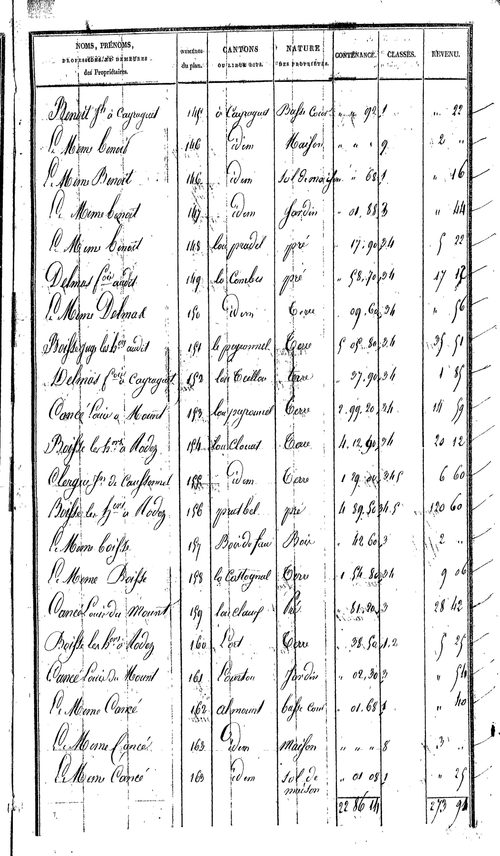 NOMS, PRÉNOMS, PROFESSIONS ET DEMEURES des Propriétaires. NUMÉROS du plan. CANTONS OU LIEUX DITS. NATURE DES PROPRIÉTÉS. CONTENANCE. CLASSES. REVENU.
Benoit à Cayragues 145 à Cayragues Basse Cour " " 92 1 " 22
Le Meme benoit 146 idem Maison " " " 9 2 "
Le Meme Benoit 146 idem Sol de maison " " 68 1 " 16
Le Meme benoit 147 idem Jardin " 01.88 3 " 44
Le Meme benoit 148 lou pradel pré " 17.90 34 5 22
Delmas audit 149 la Combes pré " 58.70 34 17
Le Meme Delmas 150 idem Terre " 09.60 34 " 56
Boisse les hers audit 151 le peyronnel Terre 5 05.80 34 35 51
Delmas à Cayragues 152 Terre " 37.90 34 1 85
Cancé Louis à Mount 153 Terre 2.99.20 34 14 59
Boisse les hers à Rodez 154 Lou Clouas Terre 4.12.90 34 20 12
de Caussonnel 155 idem Terre 1 29.00 345 6 60
Boisse les hers à Rodez 156 prat bel pré 4 89.50 34.5 120 60
Le Meme boisse 157 Bois de fau Bois " 42 60 3 2 "
Le Meme Boisse 158 la Castagnal Terre 1 54.80 34 9 06
Cancé Louis du Mount 159 lou claux Pré " 81.20 3 28 42
Boisse les hers à Rodez 160 L'ort Terre " 38.50 1.2 5 25
Cancé Louis du Mount 161 L'ourtou Jardin " 02.30 3 " 54
Le Meme Cancé 162 al mount basse cour " 01.68 1 " 40
Le Meme Cancé 163 idem maison " " " 8 3 "
Le Meme Cancé 163 idem sol de maison " 01 08 1 " 25
22 86 14 273 94